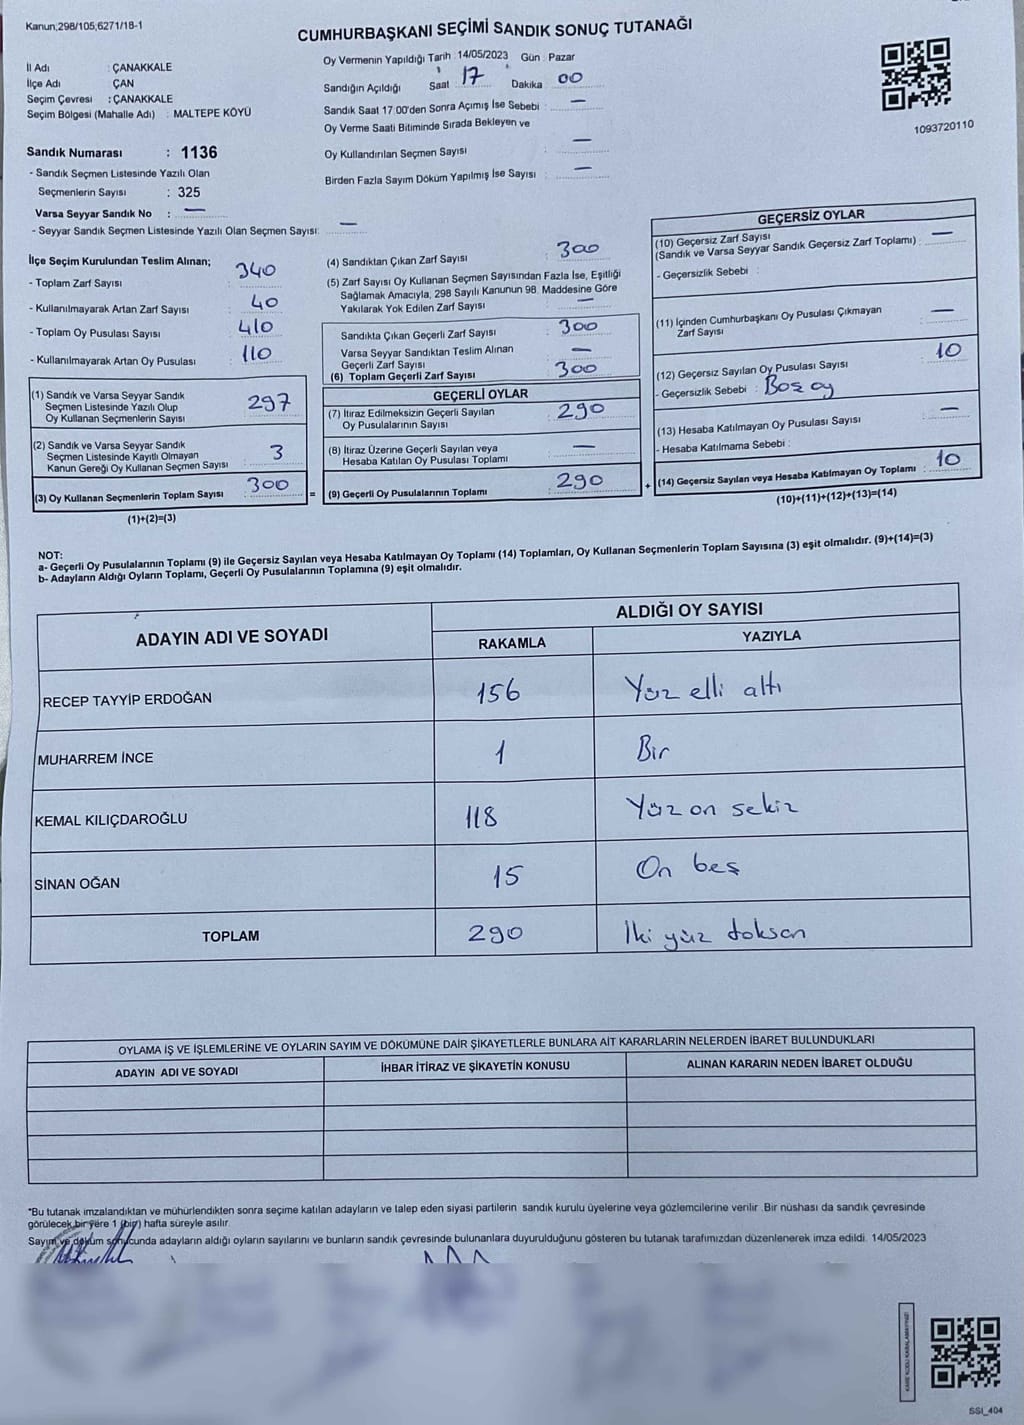 Kanun;298/105;6271/18-1
CUMHURBAŞKANI SEÇİMİ SANDIK SONUÇ TUTANAĞI
İl Adı : ÇANAKKALE
İlçe Adı : ÇAN
Seçim Çevresi : ÇANAKKALE
Seçim Bölgesi (Mahalle Adı) : MALTEPE KÖYÜ
Sandık Numarası : 1136
- Sandık Seçmen Listesinde Yazılı Olan
Seçmenlerin Sayısı : 325
Varsa Seyyar Sandık No : —
- Seyyar Sandık Seçmen Listesinde Yazılı Olan Seçmen Sayısı: —
Oy Vermenin Yapıldığı Tarih : 14/05/2023 Gün : Pazar
Sandığın Açıldığı Saat 17 Dakika 00
Sandık Saat 17:00'den Sonra Açımış İse Sebebi : —
Oy Verme Saati Bitiminde Sırada Bekleyen ve
Oy Kullandırılan Seçmen Sayısı : —
Birden Fazla Sayım Döküm Yapılmış İse Sayısı : —
1093720110
İlçe Seçim Kurulundan Teslim Alınan;
- Toplam Zarf Sayısı : 340
- Kullanılmayarak Artan Zarf Sayısı : 40
- Toplam Oy Pusulası Sayısı : 410
- Kullanılmayarak Artan Oy Pusulası : 110
(1) Sandık ve Varsa Seyyar Sandık
Seçmen Listesinde Yazılı Olup
Oy Kullanan Seçmenlerin Sayısı : 297
(2) Sandık ve Varsa Seyyar Sandık
Seçmen Listesinde Kayıtlı Olmayan
Kanun Gereği Oy Kullanan Seçmen Sayısı : 3
(3) Oy Kullanan Seçmenlerin Toplam Sayısı : 300
(1)+(2)=(3)
(4) Sandıktan Çıkan Zarf Sayısı : 300
(5) Zarf Sayısı Oy Kullanan Seçmen Sayısından Fazla İse, Eşitliği
Sağlamak Amacıyla; 298 Sayılı Kanunun 98. Maddesine Göre
Yakılarak Yok Edilen Zarf Sayısı : —
Sandıkta Çıkan Geçerli Zarf Sayısı : 300
Varsa Seyyar Sandıktan Teslim Alınan
Geçerli Zarf Sayısı : —
(6) Toplam Geçerli Zarf Sayısı : 300
GEÇERLİ OYLAR
(7) İtiraz Edilmeksizin Geçerli Sayılan
Oy Pusulalarının Sayısı : 290
(8) İtiraz Üzerine Geçerli Sayılan veya
Hesaba Katılan Oy Pusulası Toplamı : —
= (9) Geçerli Oy Pusulalarının Toplamı : 290
GEÇERSİZ OYLAR
(10) Geçersiz Zarf Sayısı
(Sandık ve Varsa Seyyar Sandık Geçersiz Zarf Toplamı) : —
- Geçersizlik Sebebi :
(11) İçinden Cumhurbaşkanı Oy Pusulası Çıkmayan
Zarf Sayısı : —
(12) Geçersiz Sayılan Oy Pusulası Sayısı : 10
- Geçersizlik Sebebi : Boş oy
(13) Hesaba Katılmayan Oy Pusulası Sayısı : —
- Hesaba Katılmama Sebebi :
+ (14) Geçersiz Sayılan veya Hesaba Katılmayan Oy Toplamı : 10
(10)+(11)+(12)+(13)=(14)
NOT:
a- Geçerli Oy Pusulalarının Toplamı (9) ile Geçersiz Sayılan veya Hesaba Katılmayan Oy Toplamı (14) Toplamları, Oy Kullanan Seçmenlerin Toplam Sayısına (3) eşit olmalıdır. (9)+(14)=(3)
b- Adayların Aldığı Oyların Toplamı, Geçerli Oy Pusulalarının Toplamına (9) eşit olmalıdır.
ADAYIN ADI VE SOYADI
ALDIĞI OY SAYISI
RAKAMLA YAZIYLA
RECEP TAYYİP ERDOĞAN 156 Yüz elli altı
MUHARREM İNCE 1 Bir
KEMAL KILIÇDAROĞLU 118 Yüz on sekiz
SİNAN OĞAN 15 On beş
TOPLAM 290 İki yüz doksan
OYLAMA İŞ VE İŞLEMLERİNE VE OYLARIN SAYIM VE DÖKÜMÜNE DAİR ŞİKAYETLERLE BUNLARA AİT KARARLARIN NELERDEN İBARET BULUNDUKLARI
ADAYIN ADI VE SOYADI İHBAR İTİRAZ VE ŞİKAYETİN KONUSU ALINAN KARARIN NEDEN İBARET OLDUĞU
*Bu tutanak imzalandıktan ve mühürlendikten sonra seçime katılan adayların ve talep eden siyasi partilerin sandık kurulu üyelerine veya gözlemcilerine verilir. Bir nüshası da sandık çevresinde
görülecek bir yere 1 (bir) hafta süreyle asılır.
Sayım ve döküm sonucunda adayların aldığı oyların sayılarını ve bunların sandık çevresinde bulunanlara duyurulduğunu gösteren bu tutanak tarafımızdan düzenlenerek imza edildi. 14/05/2023
KARE KODU KARALAMAYINIZ!
SSI_404